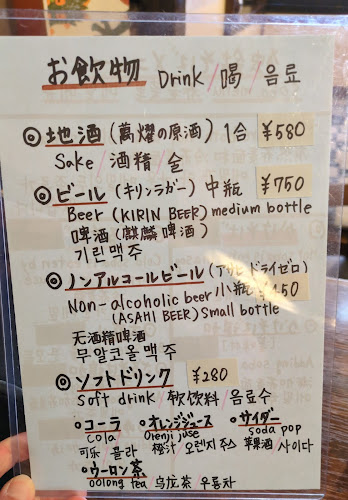 お飲物 Drink/喝/음료
◎地酒(萬燿の原酒)1合 ¥580
Sake/酒精/술
◎ビール(キリンラガー)中瓶 ¥750
Beer (KIRIN BEER) medium bottle
啤酒(麒麟啤酒)
기린맥주
◎ノンアルコールビール(アサヒドライゼロ)
Non-alcoholic beer 小瓶 450
(ASAHI BEER) Small bottle
无酒精啤酒
무알코올맥주
◎ソフトドリンク ¥280
Soft drink/軟飲料/음료수
・コーラ ・オレンジジュース ・サイダー
cola Orenji juse soda pop
可乐 콜라 橙汁 오렌지주스 苹果酒 사이다
・ウーロン茶
oolong tea 乌龙茶 우롱차